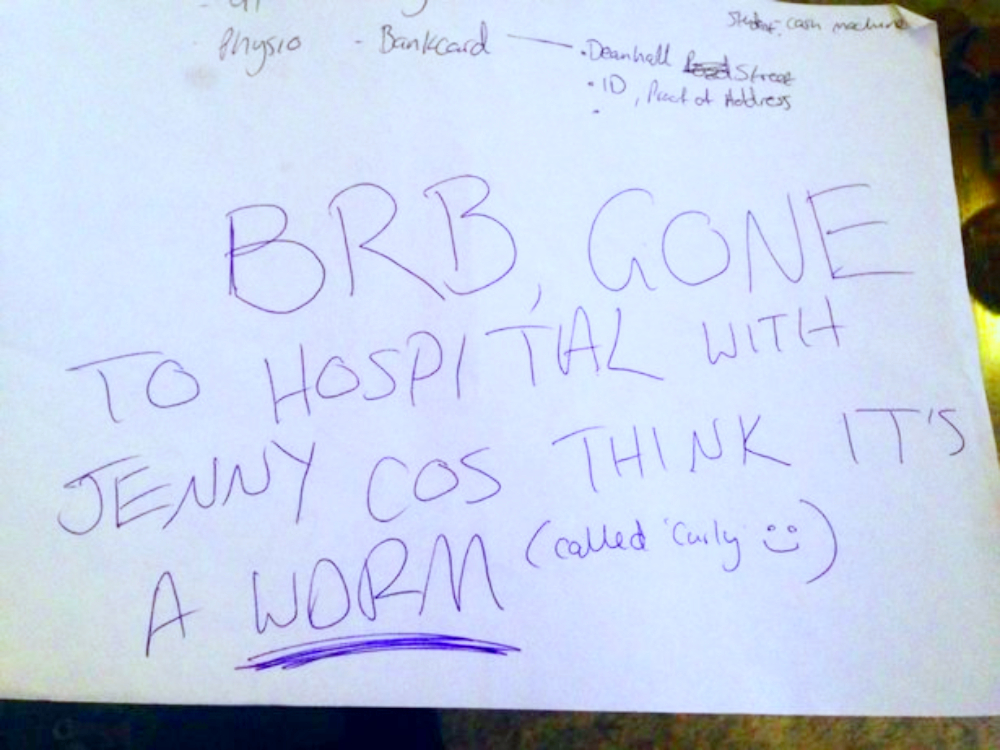 cash machine
Physio - Bankcard
• Deanhall Street
• ID, Proof of Address
BRB, GONE
TO HOSPITAL WITH
JENNY COS THINK IT'S
A WORM (called 'Curly' :))